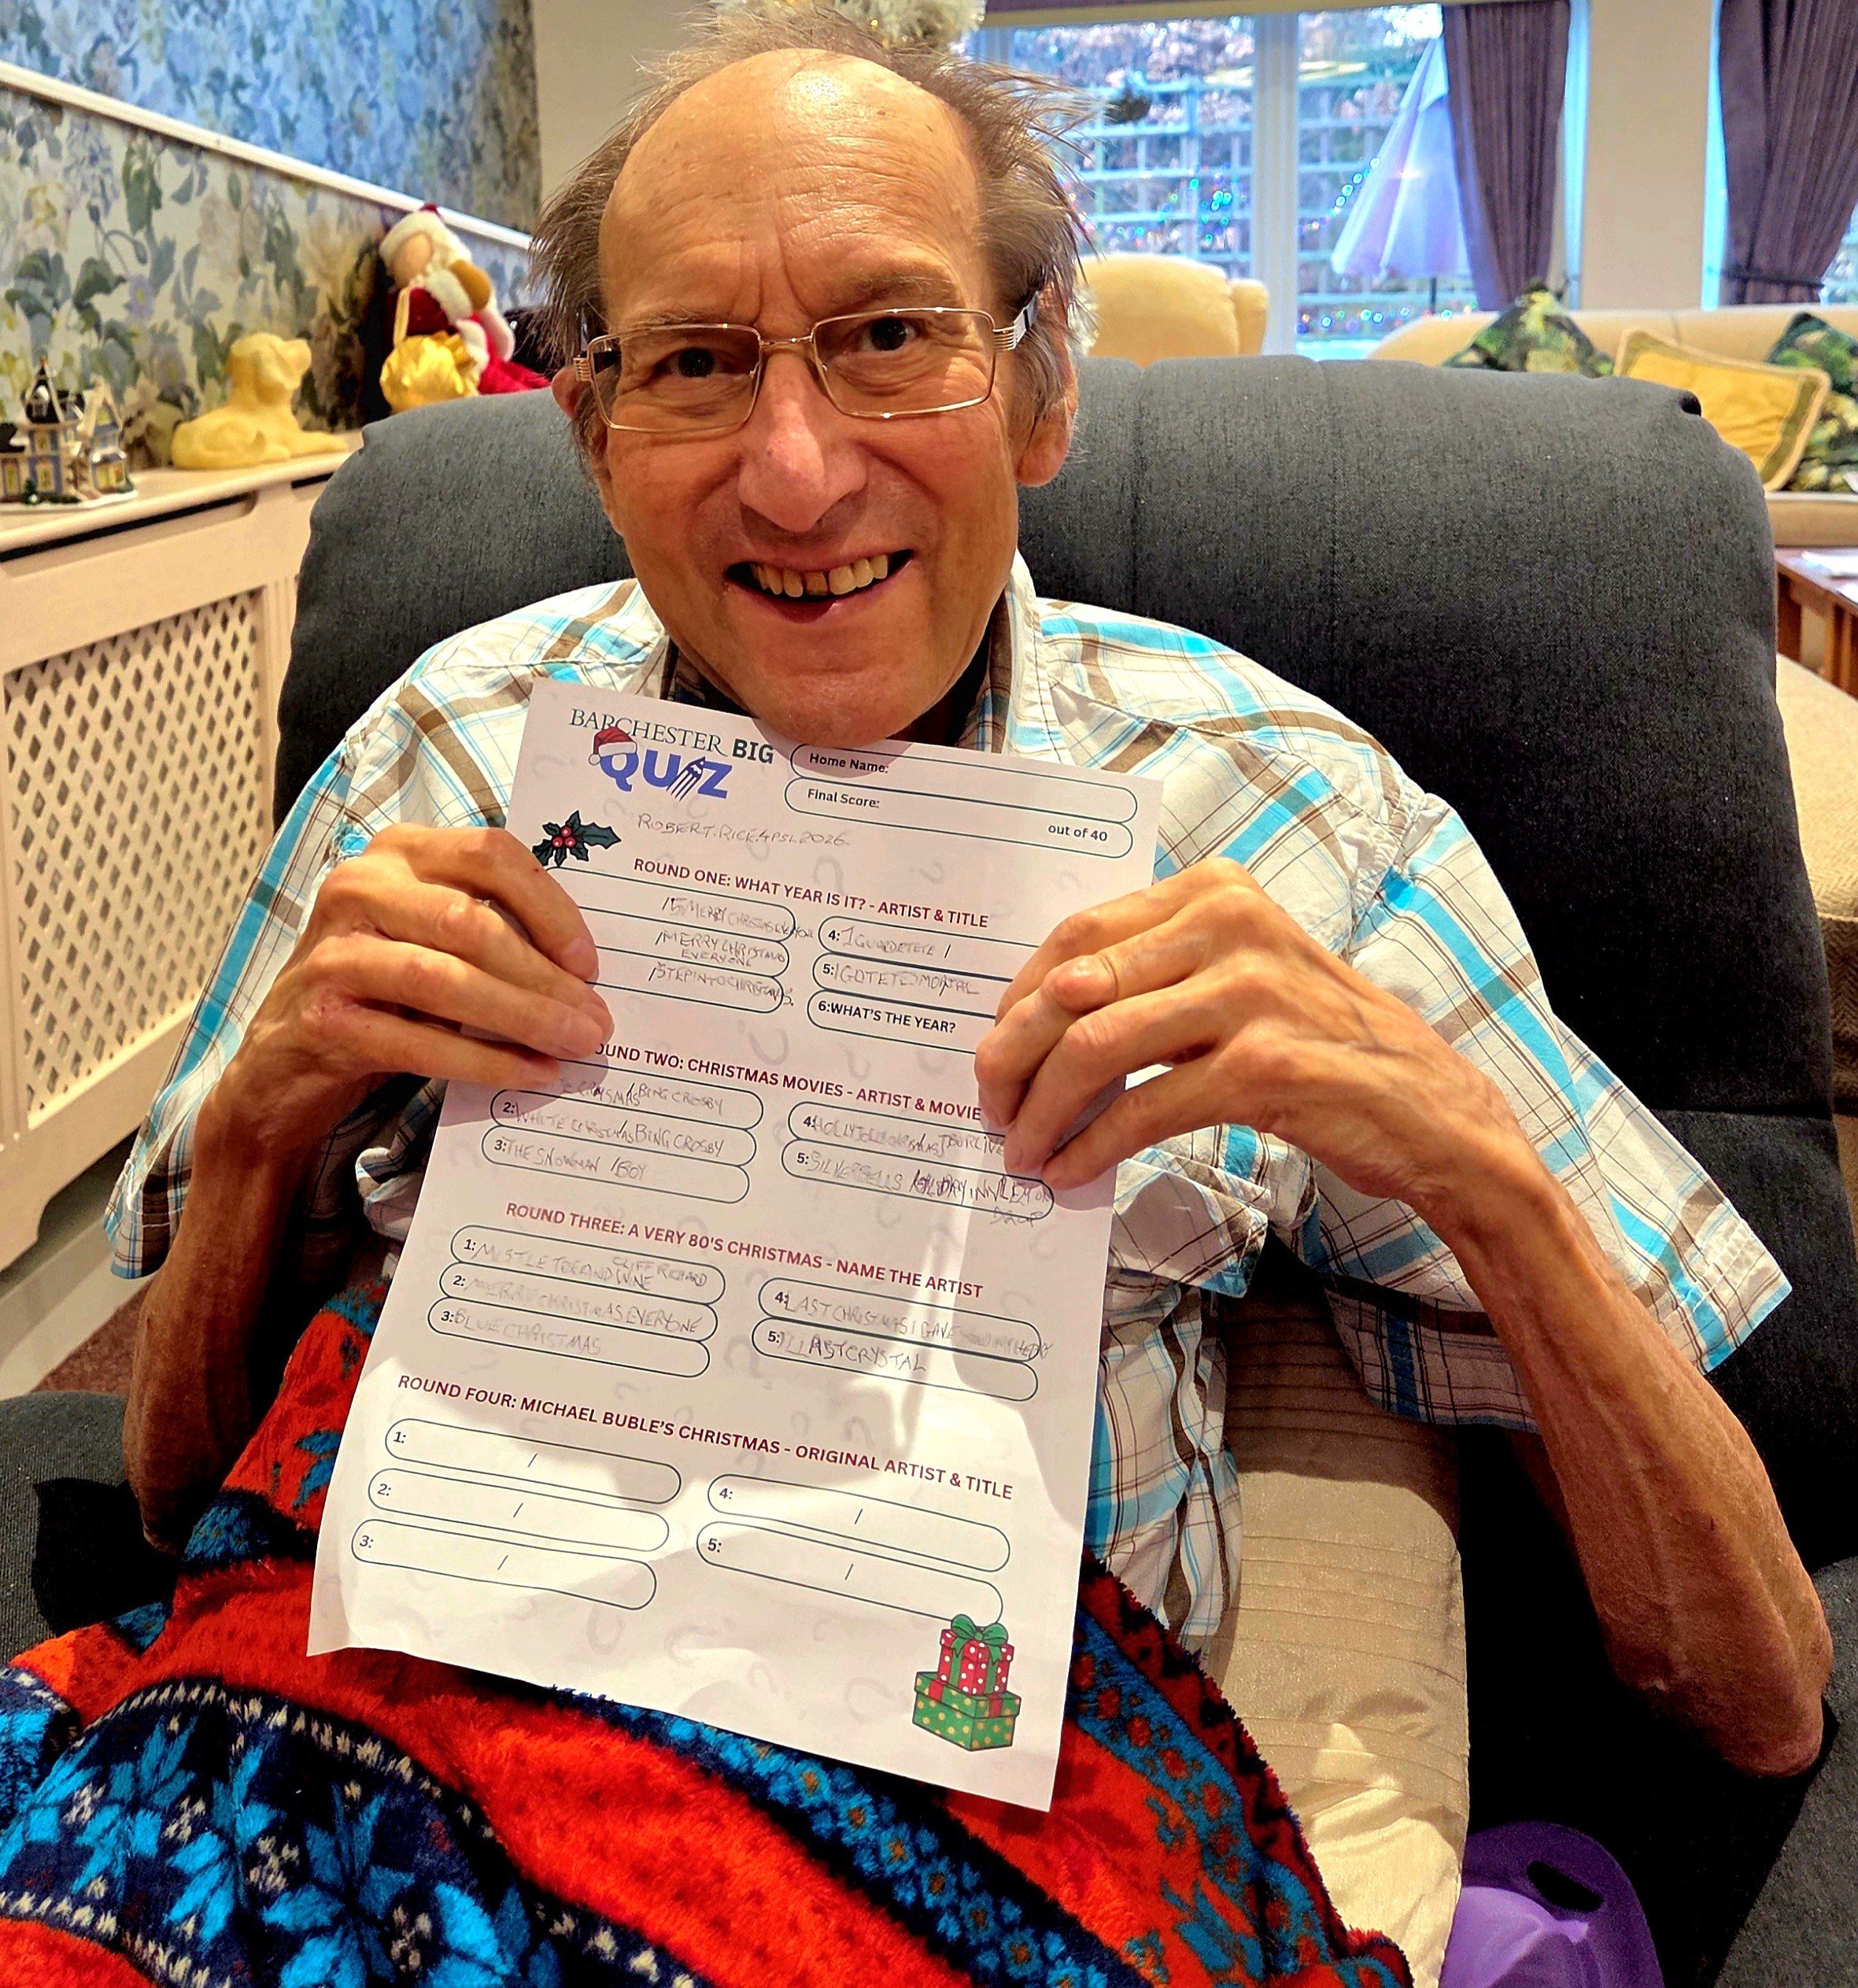 BARCHESTER BIG
QUIZ
Home Name:
Final Score:
out of 40
ROBERT.RICE.4PSL2026.
ROUND ONE: WHAT YEAR IS IT? - ARTIST & TITLE
/MERRY CHRISTMAS
EVERYONE
/STEPINTOCHRISTMAS.
4: /
5:
6:WHAT'S THE YEAR?
OUND TWO: CHRISTMAS MOVIES - ARTIST & MOVIE
/BING CROSBY
2:WHITE CHRISTMAS/BING CROSBY
3:THE SNOWMAN /BOY
4:HOLLY JOLLY
5:SILVERBELLS /
DROP
ROUND THREE: A VERY 80'S CHRISTMAS - NAME THE ARTIST
1:MISTLETOEANDWINE CLIFF RICHARD
2:MERRY CHRISTMAS EVERYONE
3:BLUECHRISTMAS
4:LAST CHRISTMAS I GAVE
5:
ROUND FOUR: MICHAEL BUBLE'S CHRISTMAS - ORIGINAL ARTIST & TITLE
1: /
2: /
3: /
4: /
5: /